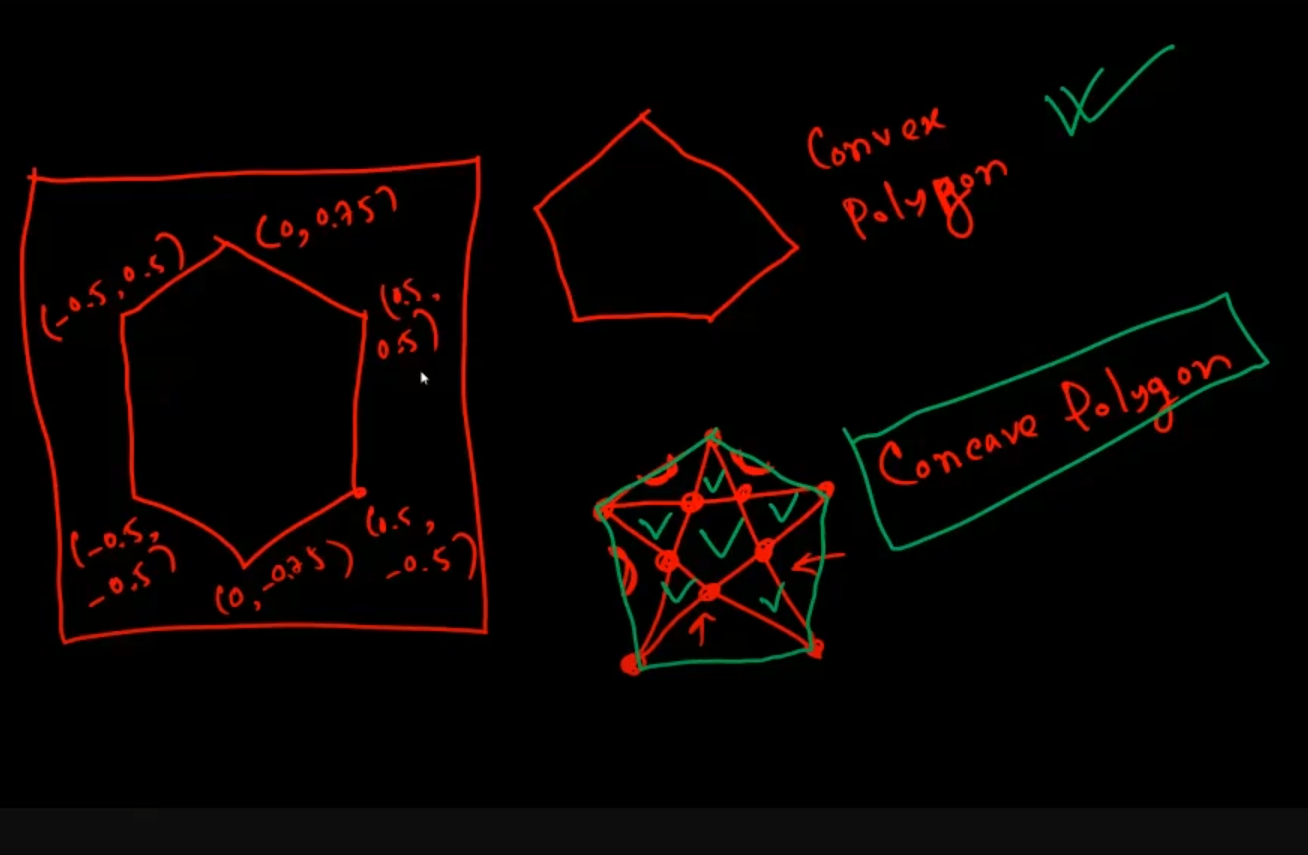 (0, 0.75)
(-0.5, 0.5)
(0.5,
0.5)
(-0.5,
-0.5)
(0, -0.75)
(0.5,
-0.5)
Convex
Polygon
Concave Polygon